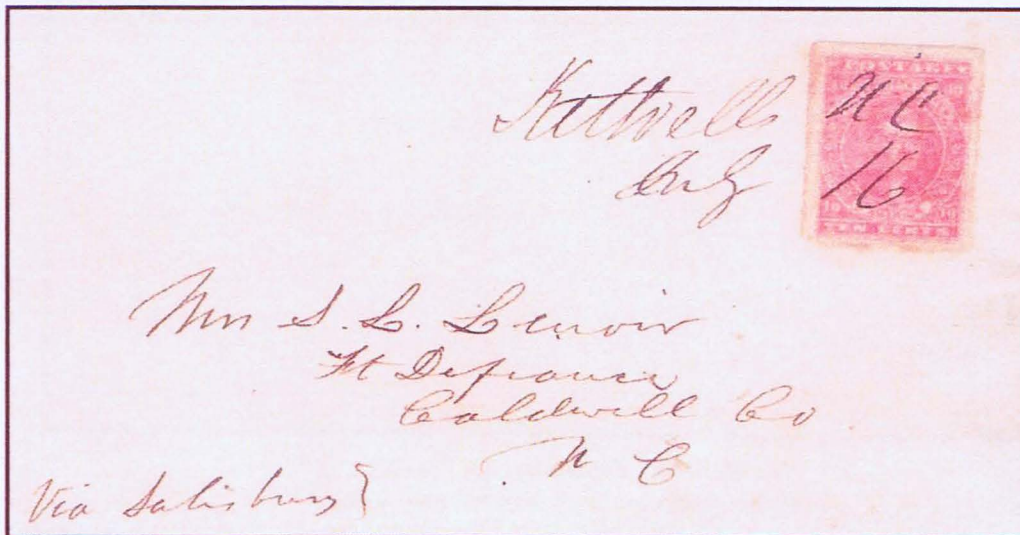 Kittrells N C
Aug 16
POSTAGE
TEN CENTS
Mrs S. L. Lenoir
Ft Defiance
Caldwell Co
N C
Via Salisbury